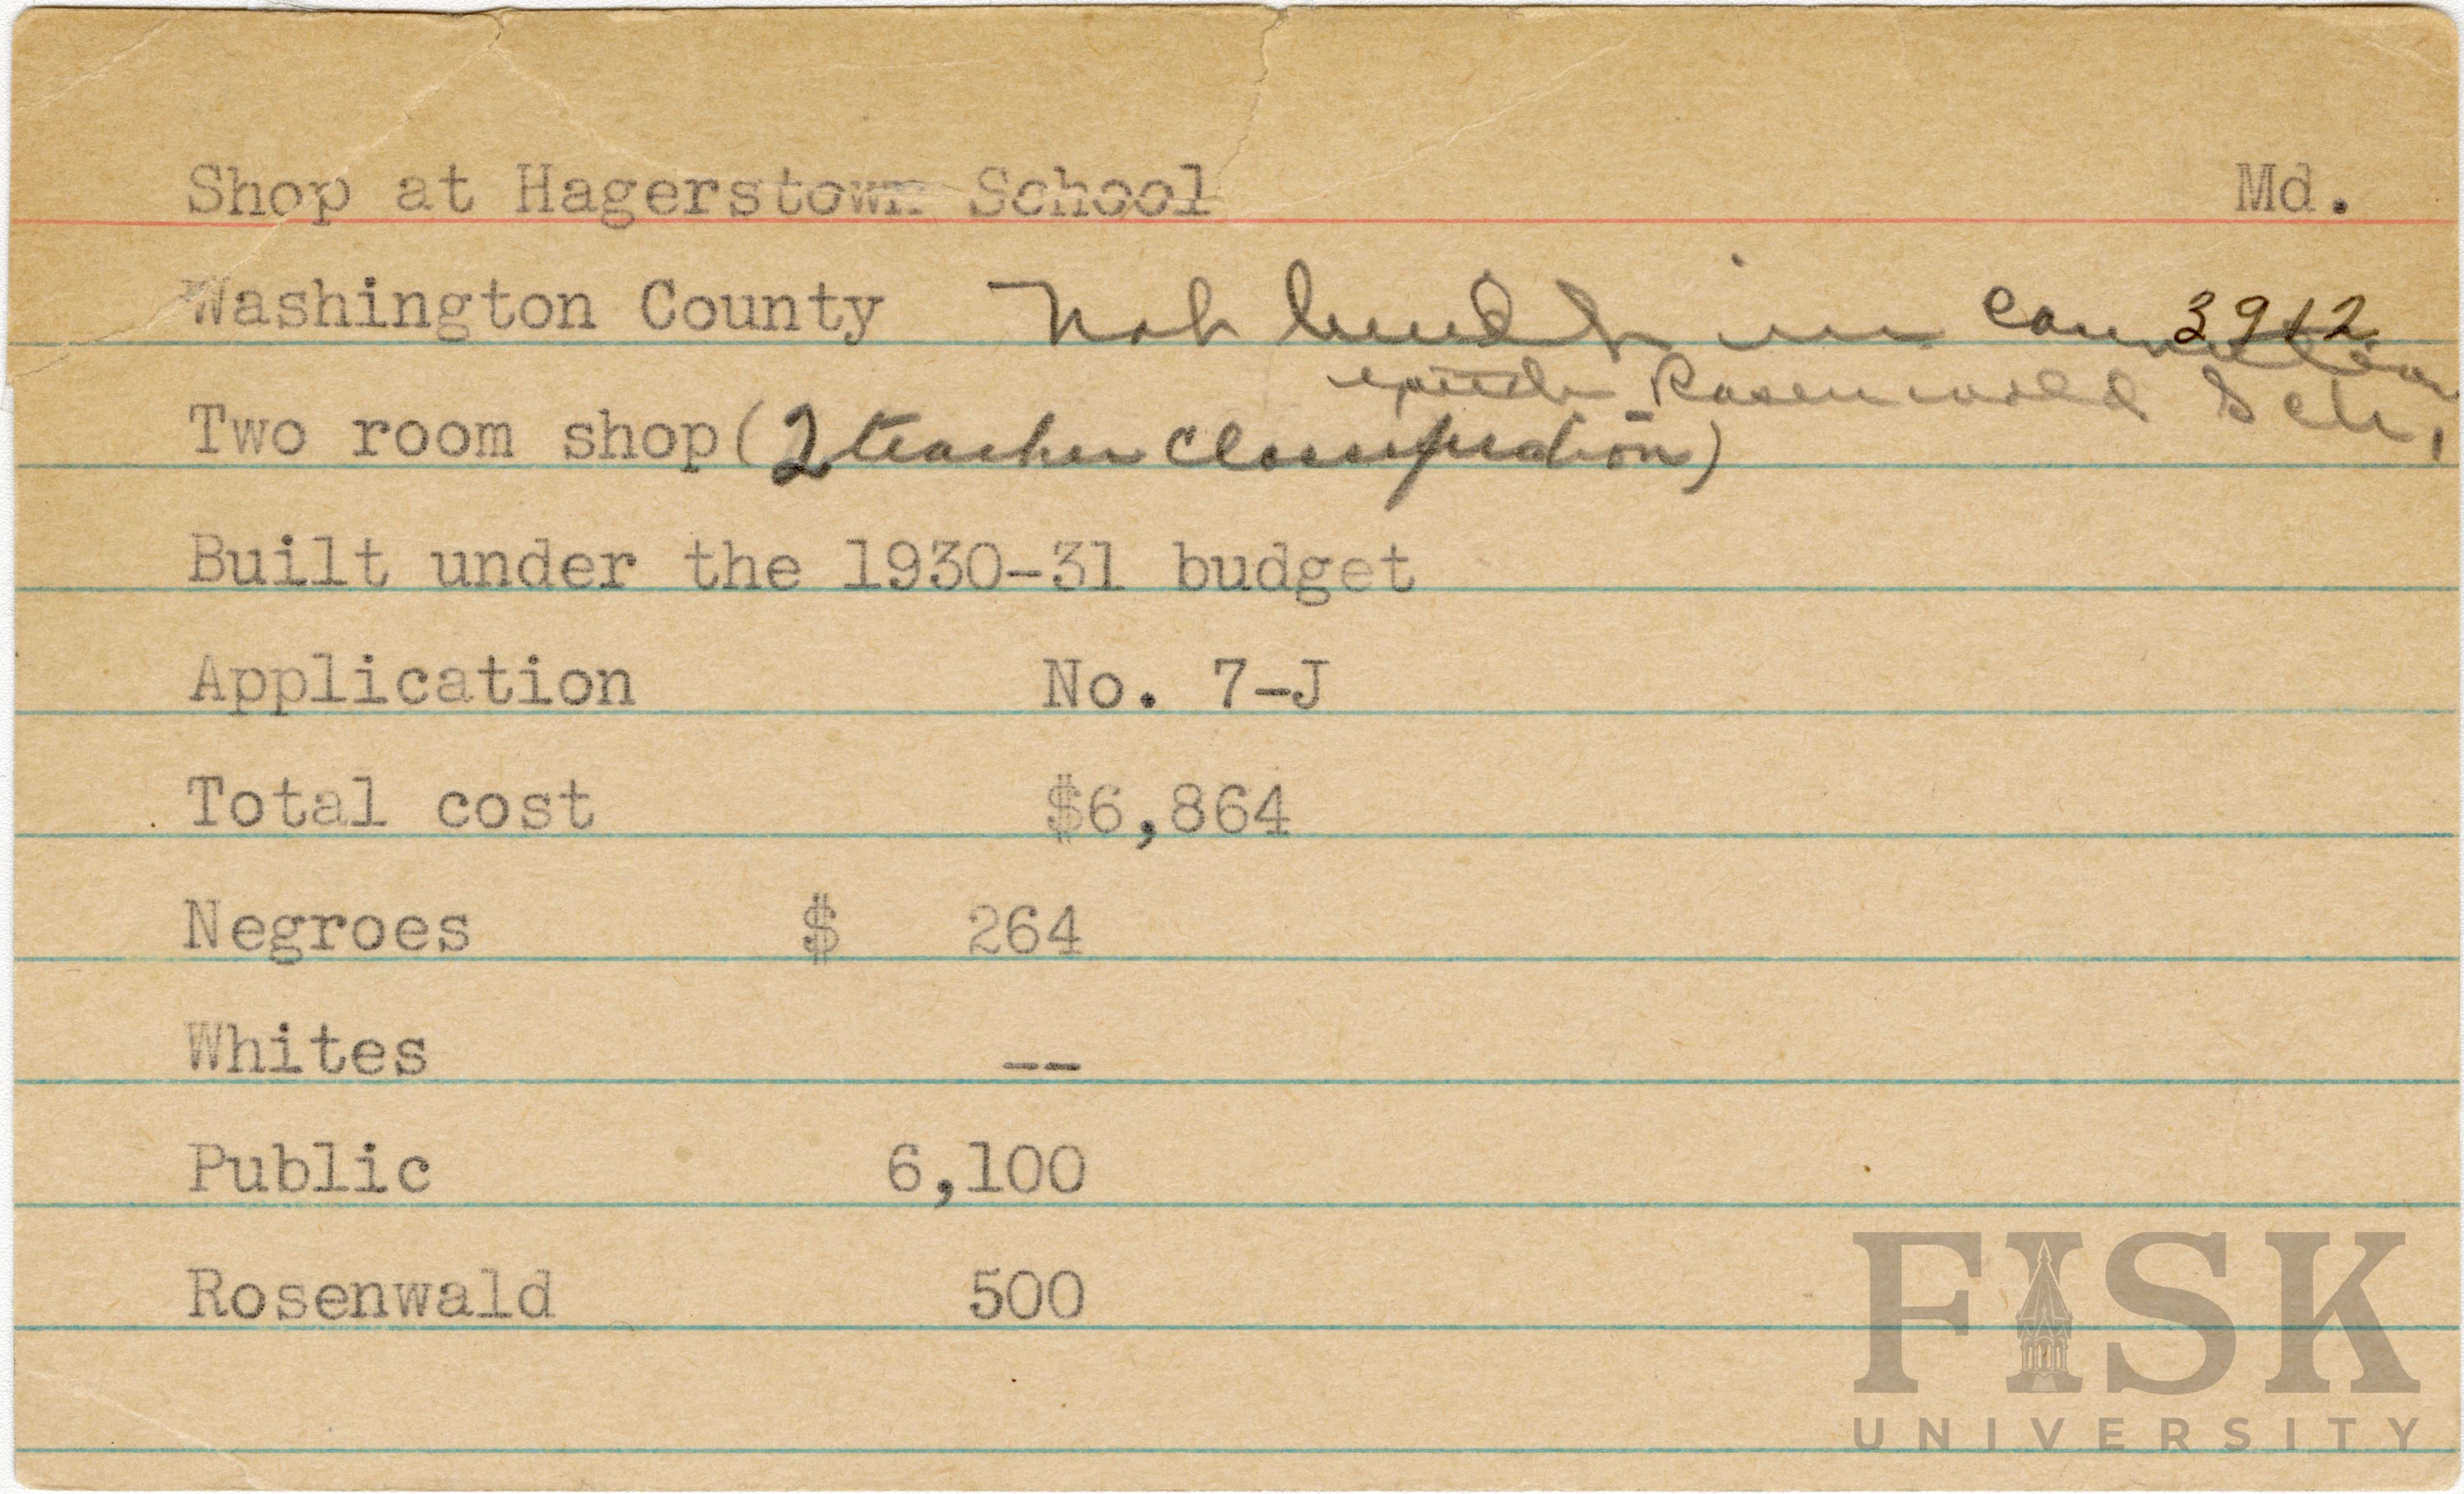 Shop at Hagerstown School Md.
Washington County Not built in connection 3912
with Rosenwald Sch.
Two room shop (2 teacher classification)
Built under the 1930-31 budget
Application No. 7-J
Total cost $6,864
Negroes $ 264
Whites --
Public 6,100
Rosenwald 500
FISK
UNIVERSITY